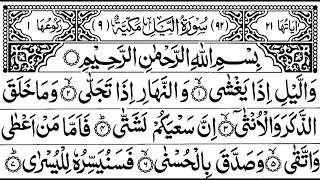 اٰیَاتُهَا ٢١ (٩٢) سُوْرَةُ الَّیْلِ مَكِّیَّةٌ (٩) رُكُوْعُهَا ١
بِسْمِ اللّٰهِ الرَّحْمٰنِ الرَّحِیْمِ
وَالَّیْلِ اِذَا یَغْشٰی ١ وَالنَّهَارِ اِذَا تَجَلّٰی ٢ وَمَا خَلَقَ
الذَّكَرَ وَالْاُنْثٰۤی ٣ اِنَّ سَعْیَكُمْ لَشَتّٰی ٤ فَاَمَّا مَنْ اَعْطٰی
وَاتَّقٰی ٥ وَصَدَّقَ بِالْحُسْنٰی ٦ فَسَنُیَسِّرُهٗ لِلْیُسْرٰی ٧